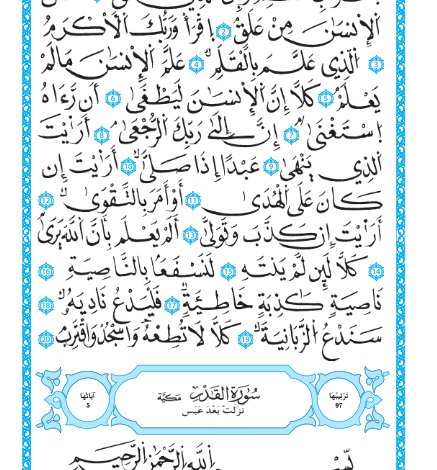 اَلْإِنسَٰنَ مِنْ عَلَقٍ 2 اِقْرَأْ وَرَبُّكَ اَلْأَكْرَمُ
3 اُلَّذِي عَلَّمَ بِالْقَلَمِ 4 عَلَّمَ اَلْإِنسَٰنَ مَا لَمْ
يَعْلَمْ 5 كَلَّا إِنَّ اَلْإِنسَٰنَ لَيَطْغَىٰ 6 أَن رَّءَاهُ
اُسْتَغْنَىٰ 7 إِنَّ إِلَىٰ رَبِّكَ اَلرُّجْعَىٰ 8 أَرَٰيْتَ
اَلَّذِي يَنْهَىٰ 9 عَبْدًا إِذَا صَلَّىٰ 10 أَرَٰيْتَ إِن
كَانَ عَلَى اَلْهُدَىٰ 11 أَوْ أَمَرَ بِالتَّقْوَىٰ 12
أَرَٰيْتَ إِن كَذَّبَ وَتَوَلَّىٰ 13 أَلَمْ يَعْلَم بِأَنَّ اَللَّهَ يَرَىٰ
14 كَلَّا لَئِن لَّمْ يَنتَهِ 15 لَنَسْفَعًا بِالنَّاصِيَةِ 16
نَاصِيَةٍ كَٰذِبَةٍ خَاطِئَةٍ 17 فَلْيَدْعُ نَادِيَهُۥ 18
سَنَدْعُ اُلزَّبَانِيَةَ 19 كَلَّا لَا تُطِعْهُ وَاسْجُدْ وَاقْتَرِب 20
تَرْتِيبُهَا 97
سُورَةُ الْقَدْرِ مَكِّيَّة
نَزَلَتْ بَعْدَ عَبَسَ
آيَاتُهَا 5
بِسْمِ اِللَّهِ اِلرَّحْمَٰنِ اِلرَّحِيمِ